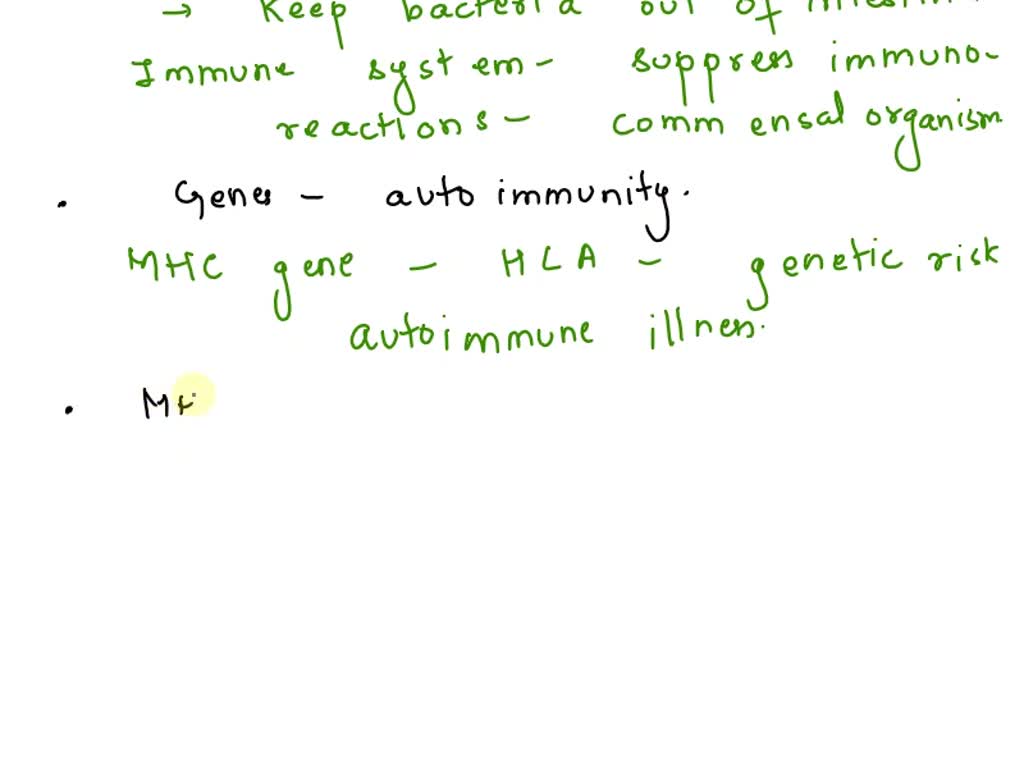 → Keep bacteria out of
Immune system - suppress immuno-
reactions - commensal organism
. Genes - autoimmunity.
MHC gene - HLA - genetic risk
autoimmune illness.
. MH